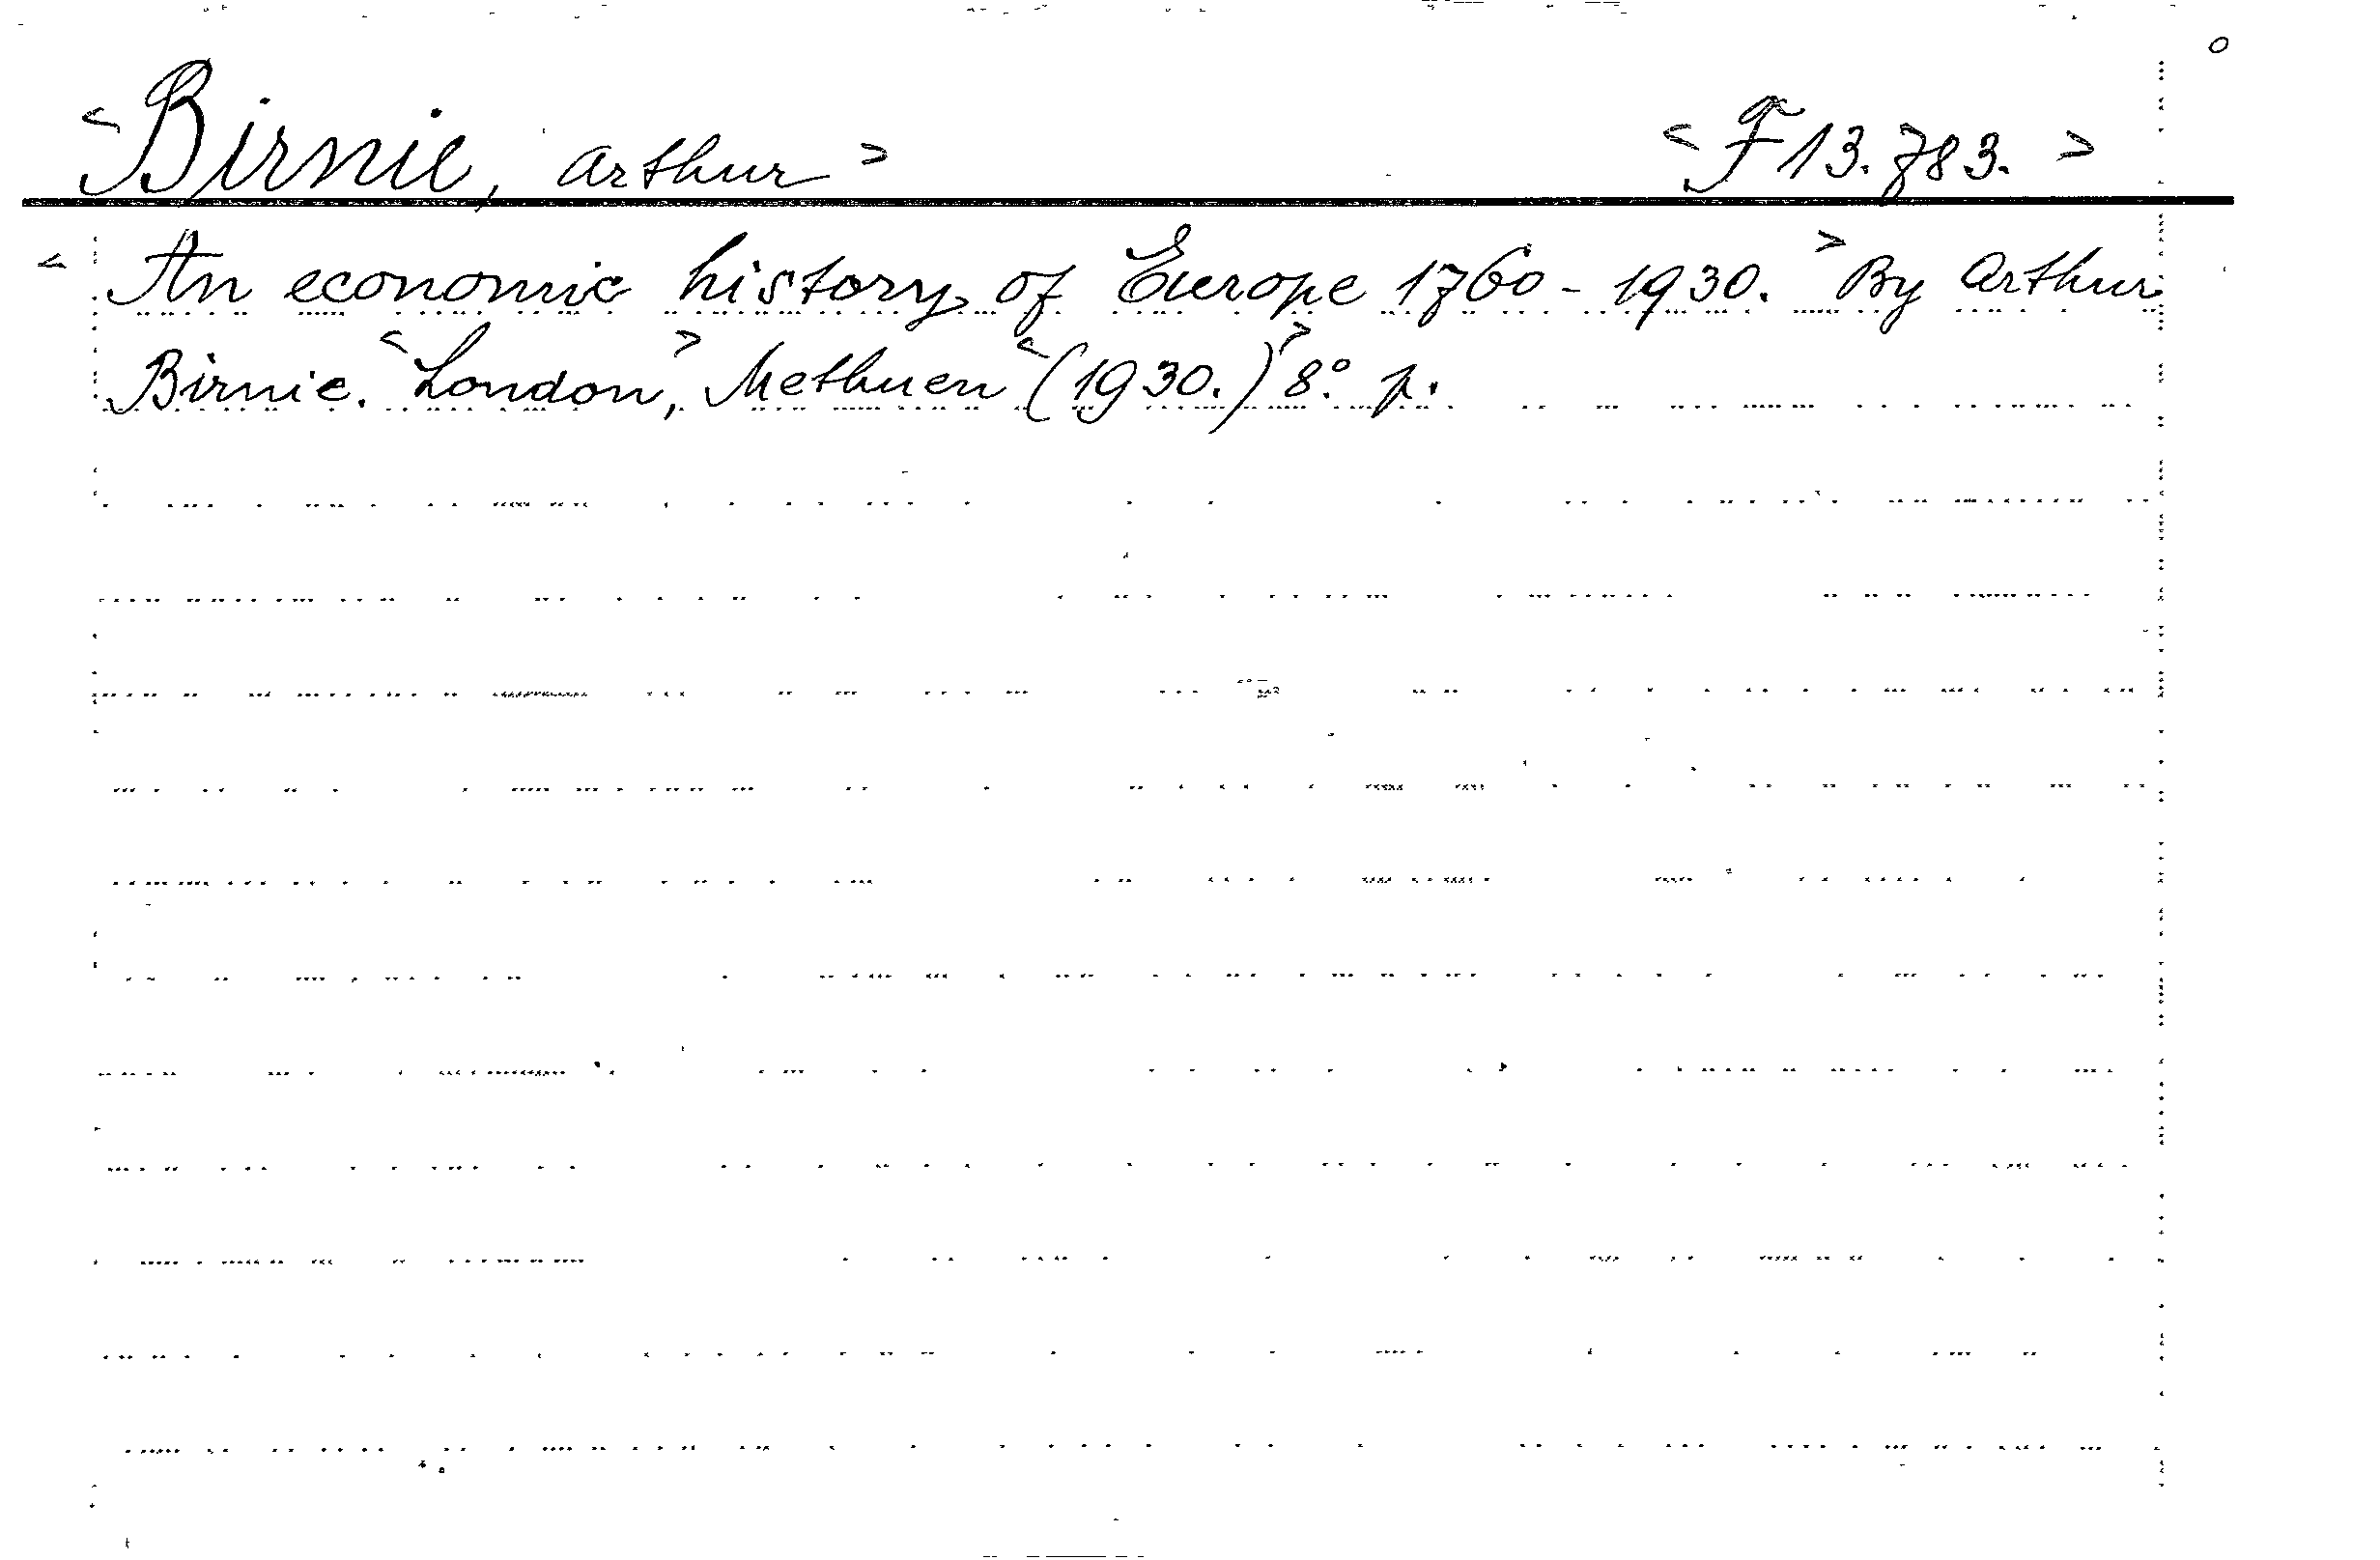 <Birnie, Arthur> <F 13.783.>
<An economic history of Europe 1760-1930.> By Arthur
Birnie. <London,> Methuen <(1930.)> 8° p.